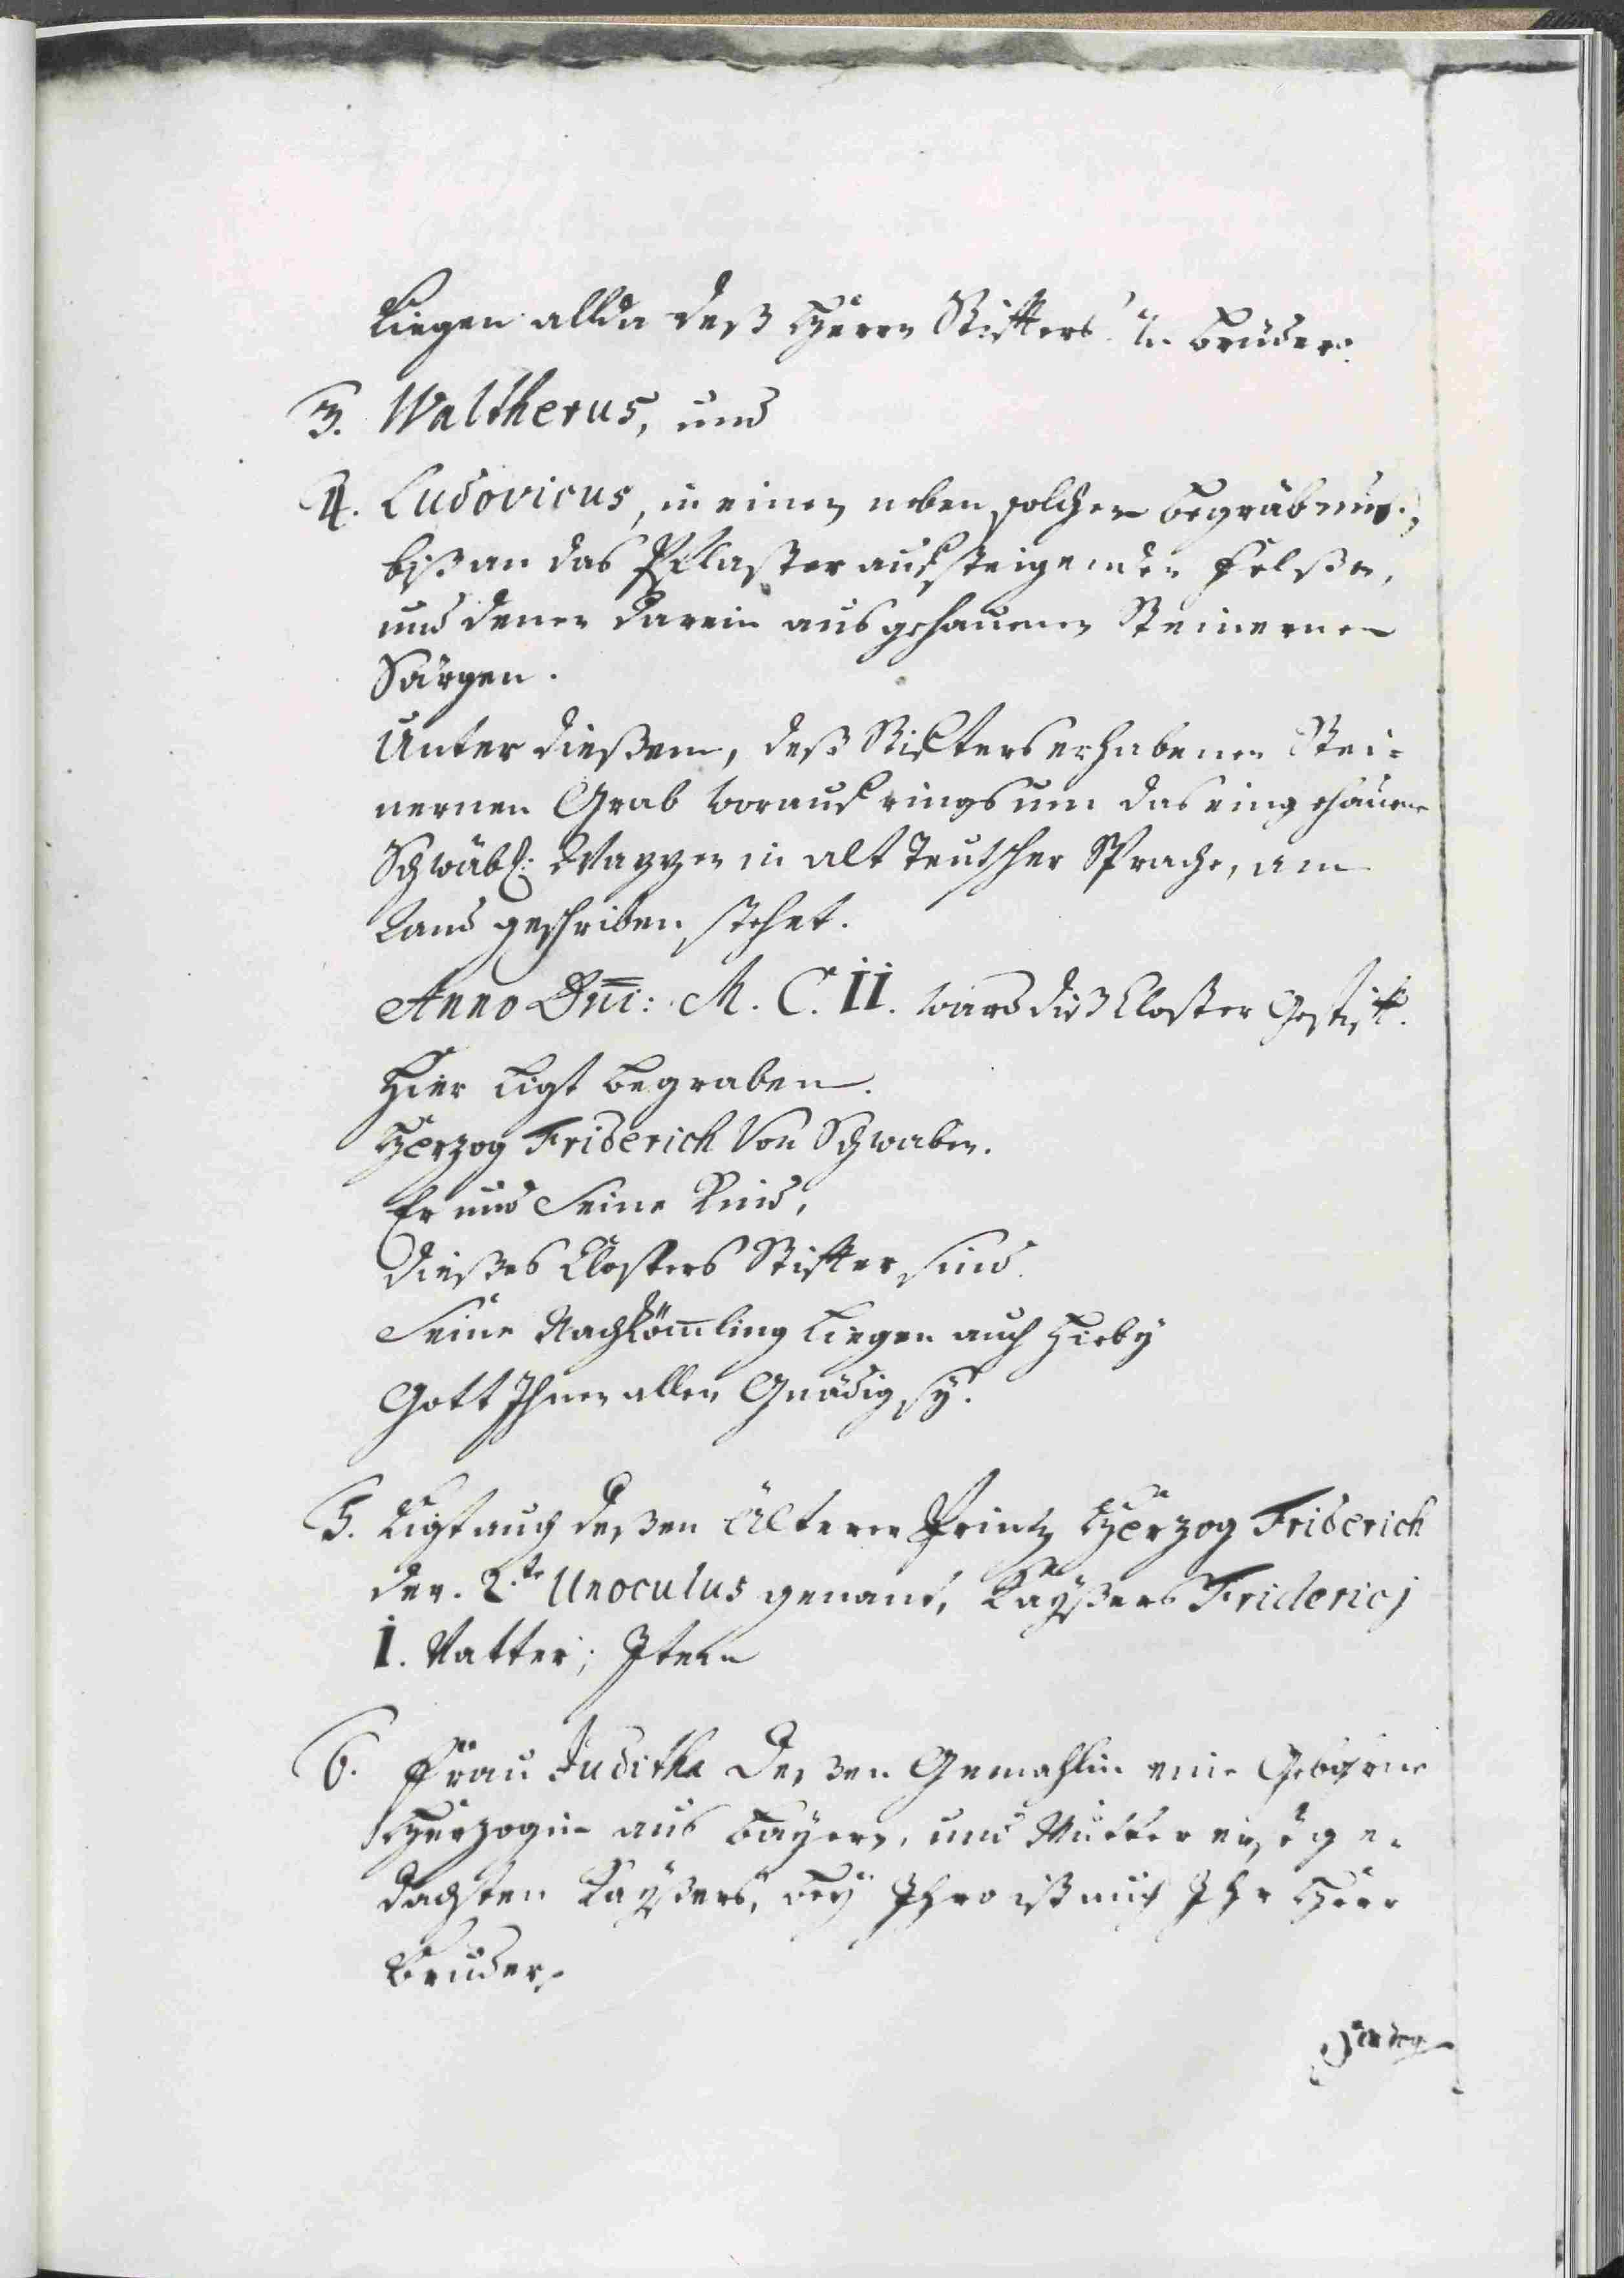 Liegen allda deß Herrn Stiffters Brüder.
3. Waltherus, und
4. Ludovicus, in einen neben solchen Begräbnus,
biß an das Pflaster aufsteigenden Felßen,
und denen darein ausgehauenen Steinernen
Särgen.
Unter dießem, deß Stifters erhabenen Stei=
nernen Grab worauf rings um das eingehauene
Schwäbl: Wappen in alt Teutscher Sprache, am
Rand geschriben stehet.
Anno Dni: M. C. II. ward diß Closter Gestifft.
Hier Ligt Begraben.
Herzog Friderich Von Schwaben.
Er und Seine Kind,
dießes Closters Stiffter sind.
Seine Nachkömling Liegen auch Hieby
Gott Ihnen allen Gnädig sy.
5. Ligt auch deßen Älterer Printz Herzog Friderich
der 2.te Unoculus genant, Kayßers Fridericj
I. Vatter; Item
6. Frau Juditha Deßen Gemahlin eine Gebohrne
Herzogin aus Bayern, und Mutter erst ge=
dachten Kayßers, bey Ihro ist auch Ihr Herr
Bruder,